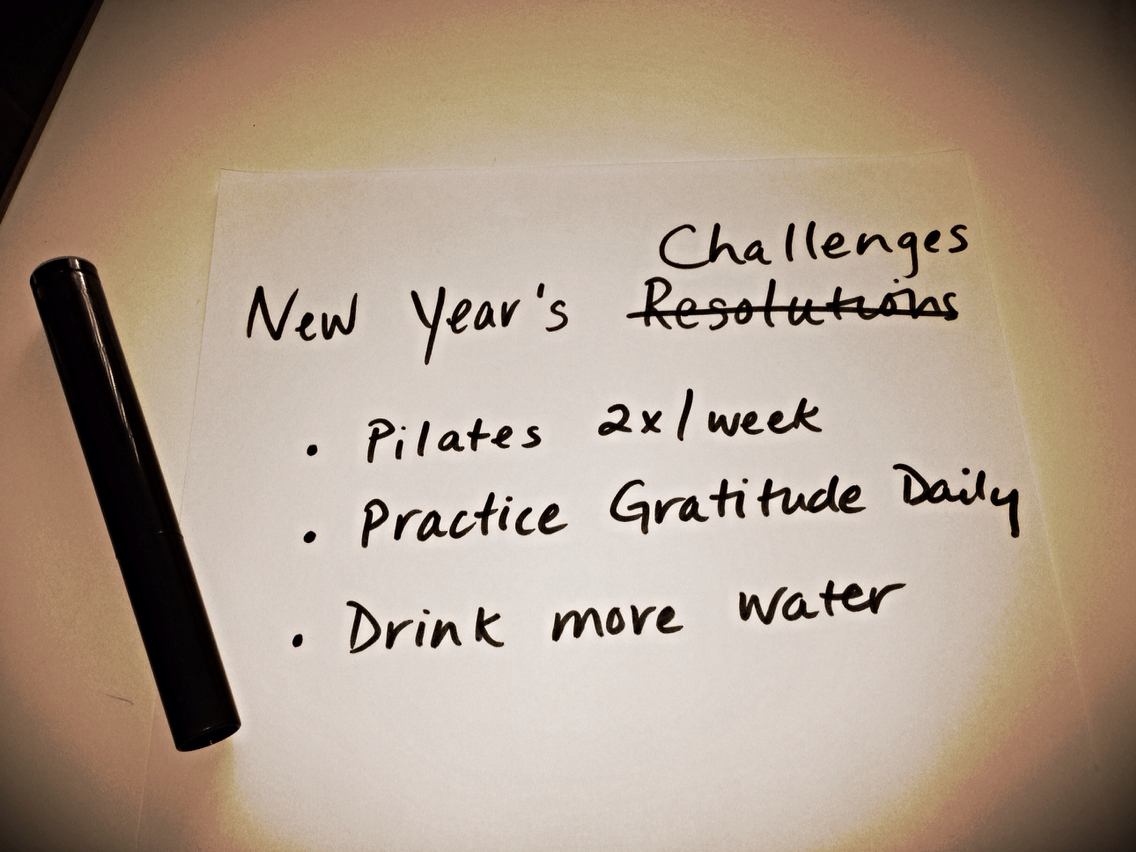 Challenges
New Year's Resolutions
• Pilates 2x/week
• Practice Gratitude Daily
• Drink more water